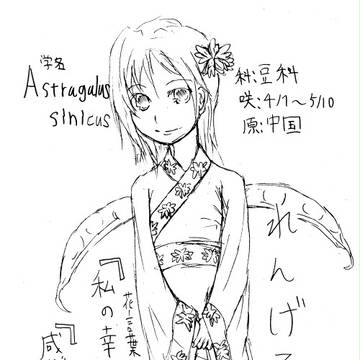 学名
Astragalus
sinicus
科:豆科
咲:4/1～5/10
原:中国
れんげ
花言葉
『私の幸
『感